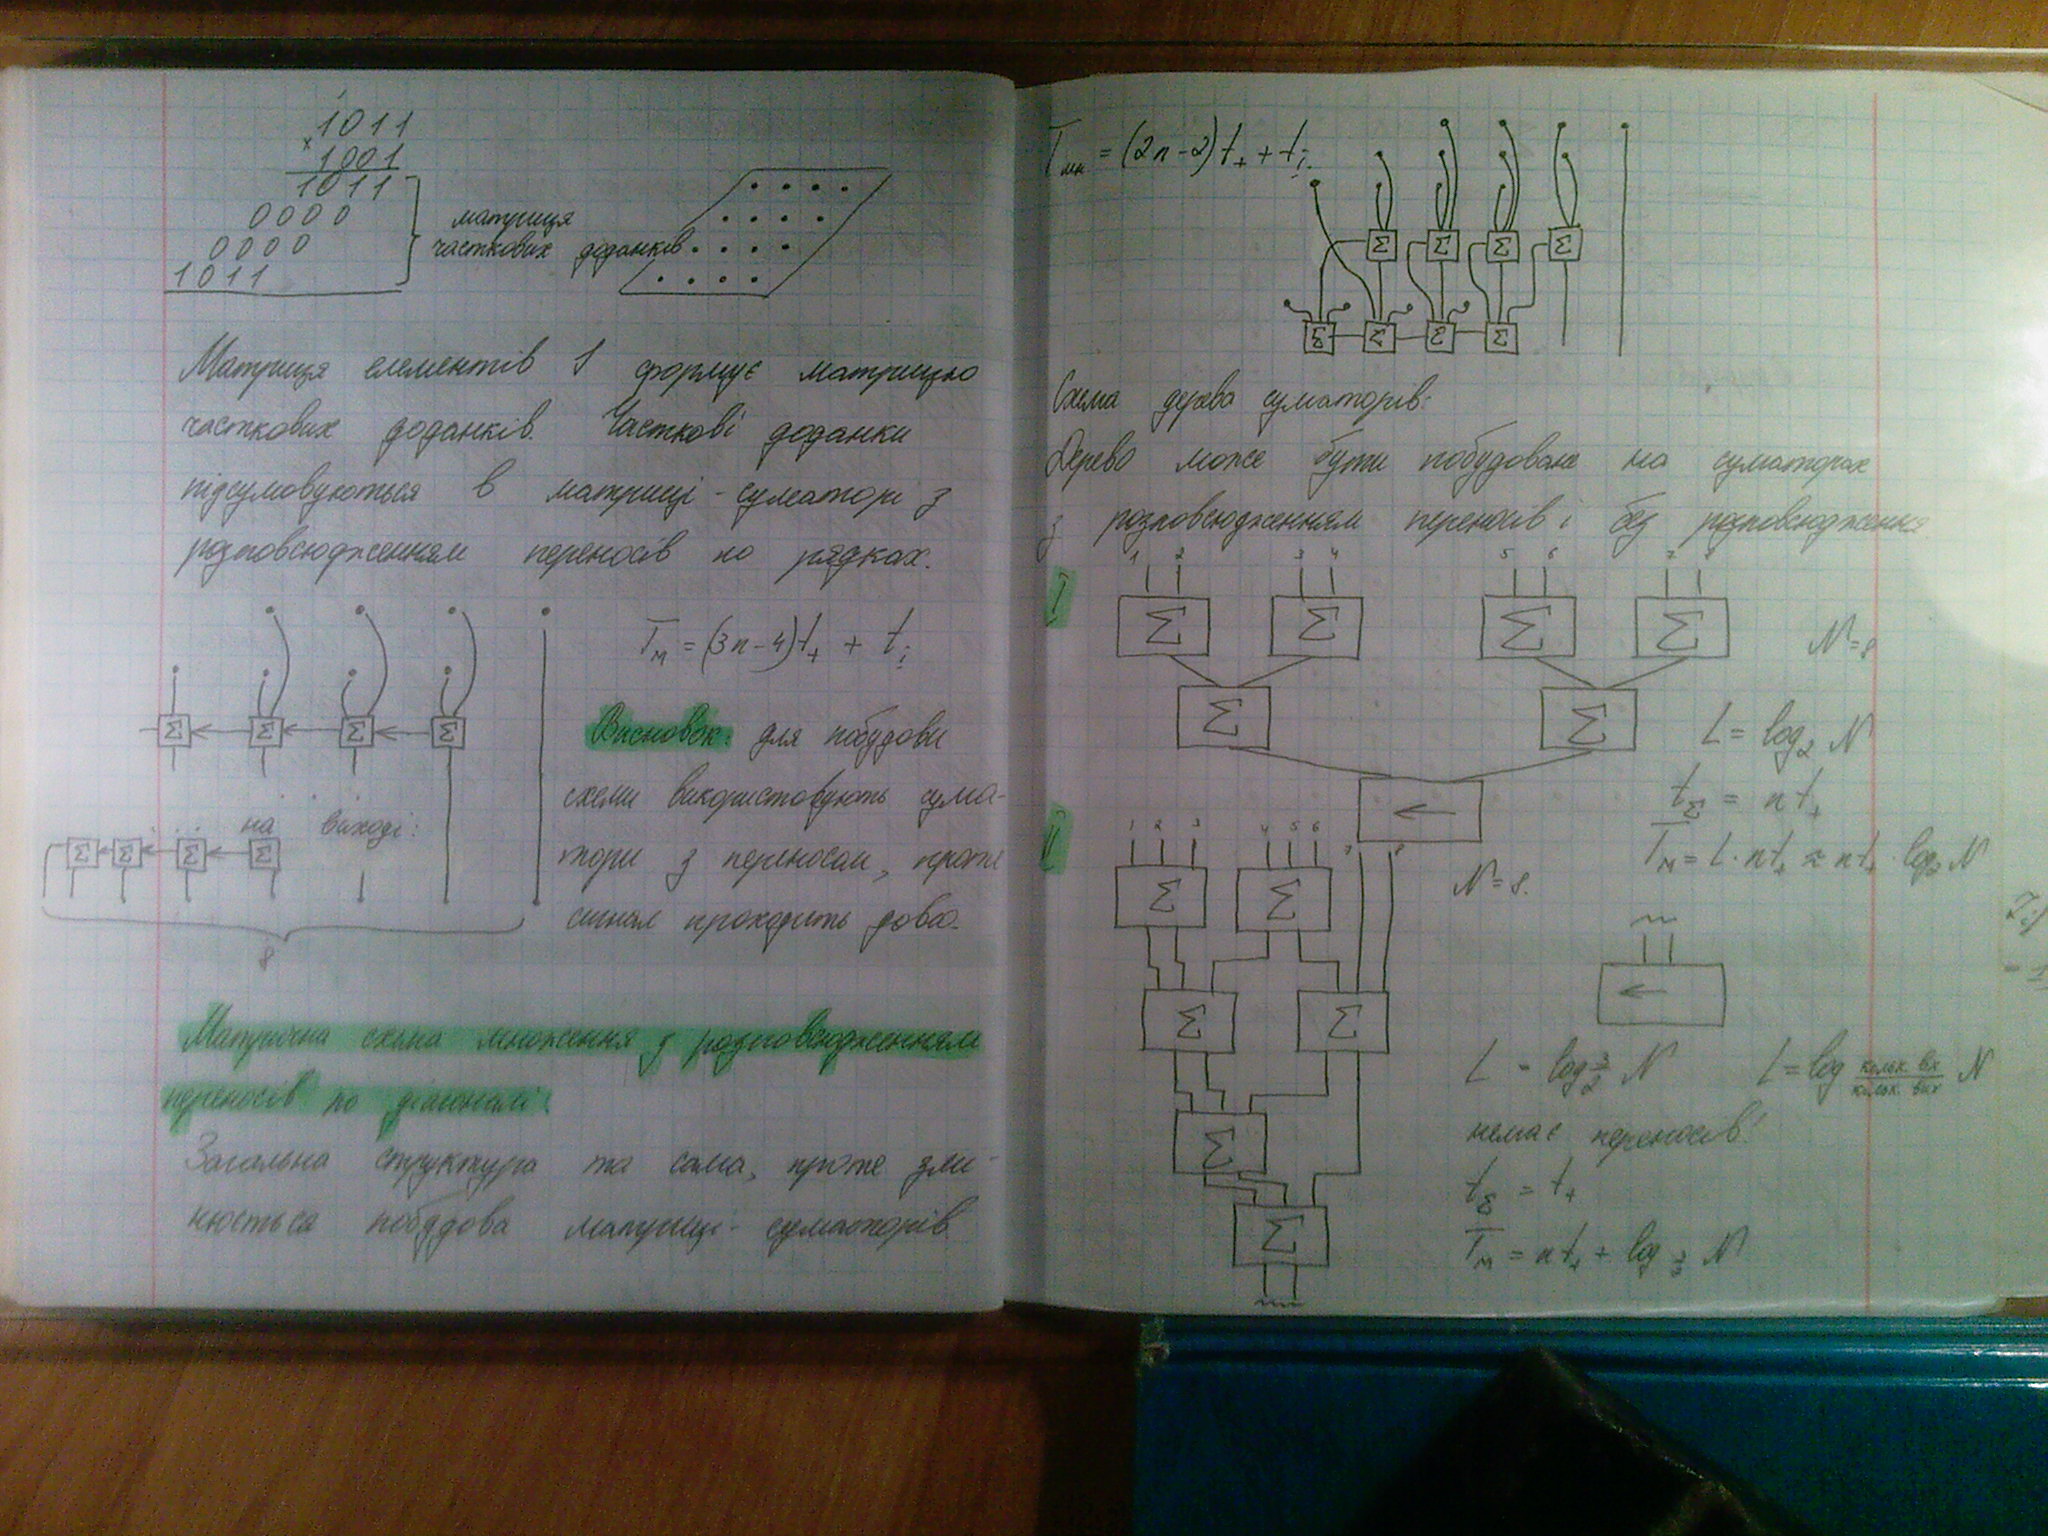 1011
× 1001
1011
0000
0000
1011
матриця
часткових доданків
Матриця елементів І формує матрицю
часткових доданків. Часткові доданки
підсумовуються в матриці-суматорі з
розповсюдженням переносів по рядках.
Tм = (3n-4)t+ + tі
Σ Σ Σ Σ
Висновок: для побудови
схеми використовують сума-
тори з переносом, проте
сигнал проходить довго.
на виході:
Σ Σ Σ Σ
8
Матрична схема множення з розповсюдженням
переносів по діагоналі:
Загальна структура та сама, проте змі-
нюється побудова матриці-суматорів
Tмн = (2n-2)t+ + tі
Σ Σ Σ Σ
Σ Σ Σ Σ
Схема дерева суматорів:
Дерево може бути побудоване на суматорах
з розповсюдженням переносів і без розповсюдження
I
1 2 3 4 5 6 7 8
Σ Σ Σ Σ
N=8
Σ Σ
L = log₂ N
tΣ = nt+
Tм = L·nt+ ≈ nt+·log₂N
II
1 2 3 4 5 6 7 8
Σ Σ
N=8.
Σ Σ
L = log 3/2 N
L = log кільк. вх/кільк. вих N
немає переносів!
Σ
t = t+
Σ
Tм = nt+ + log N